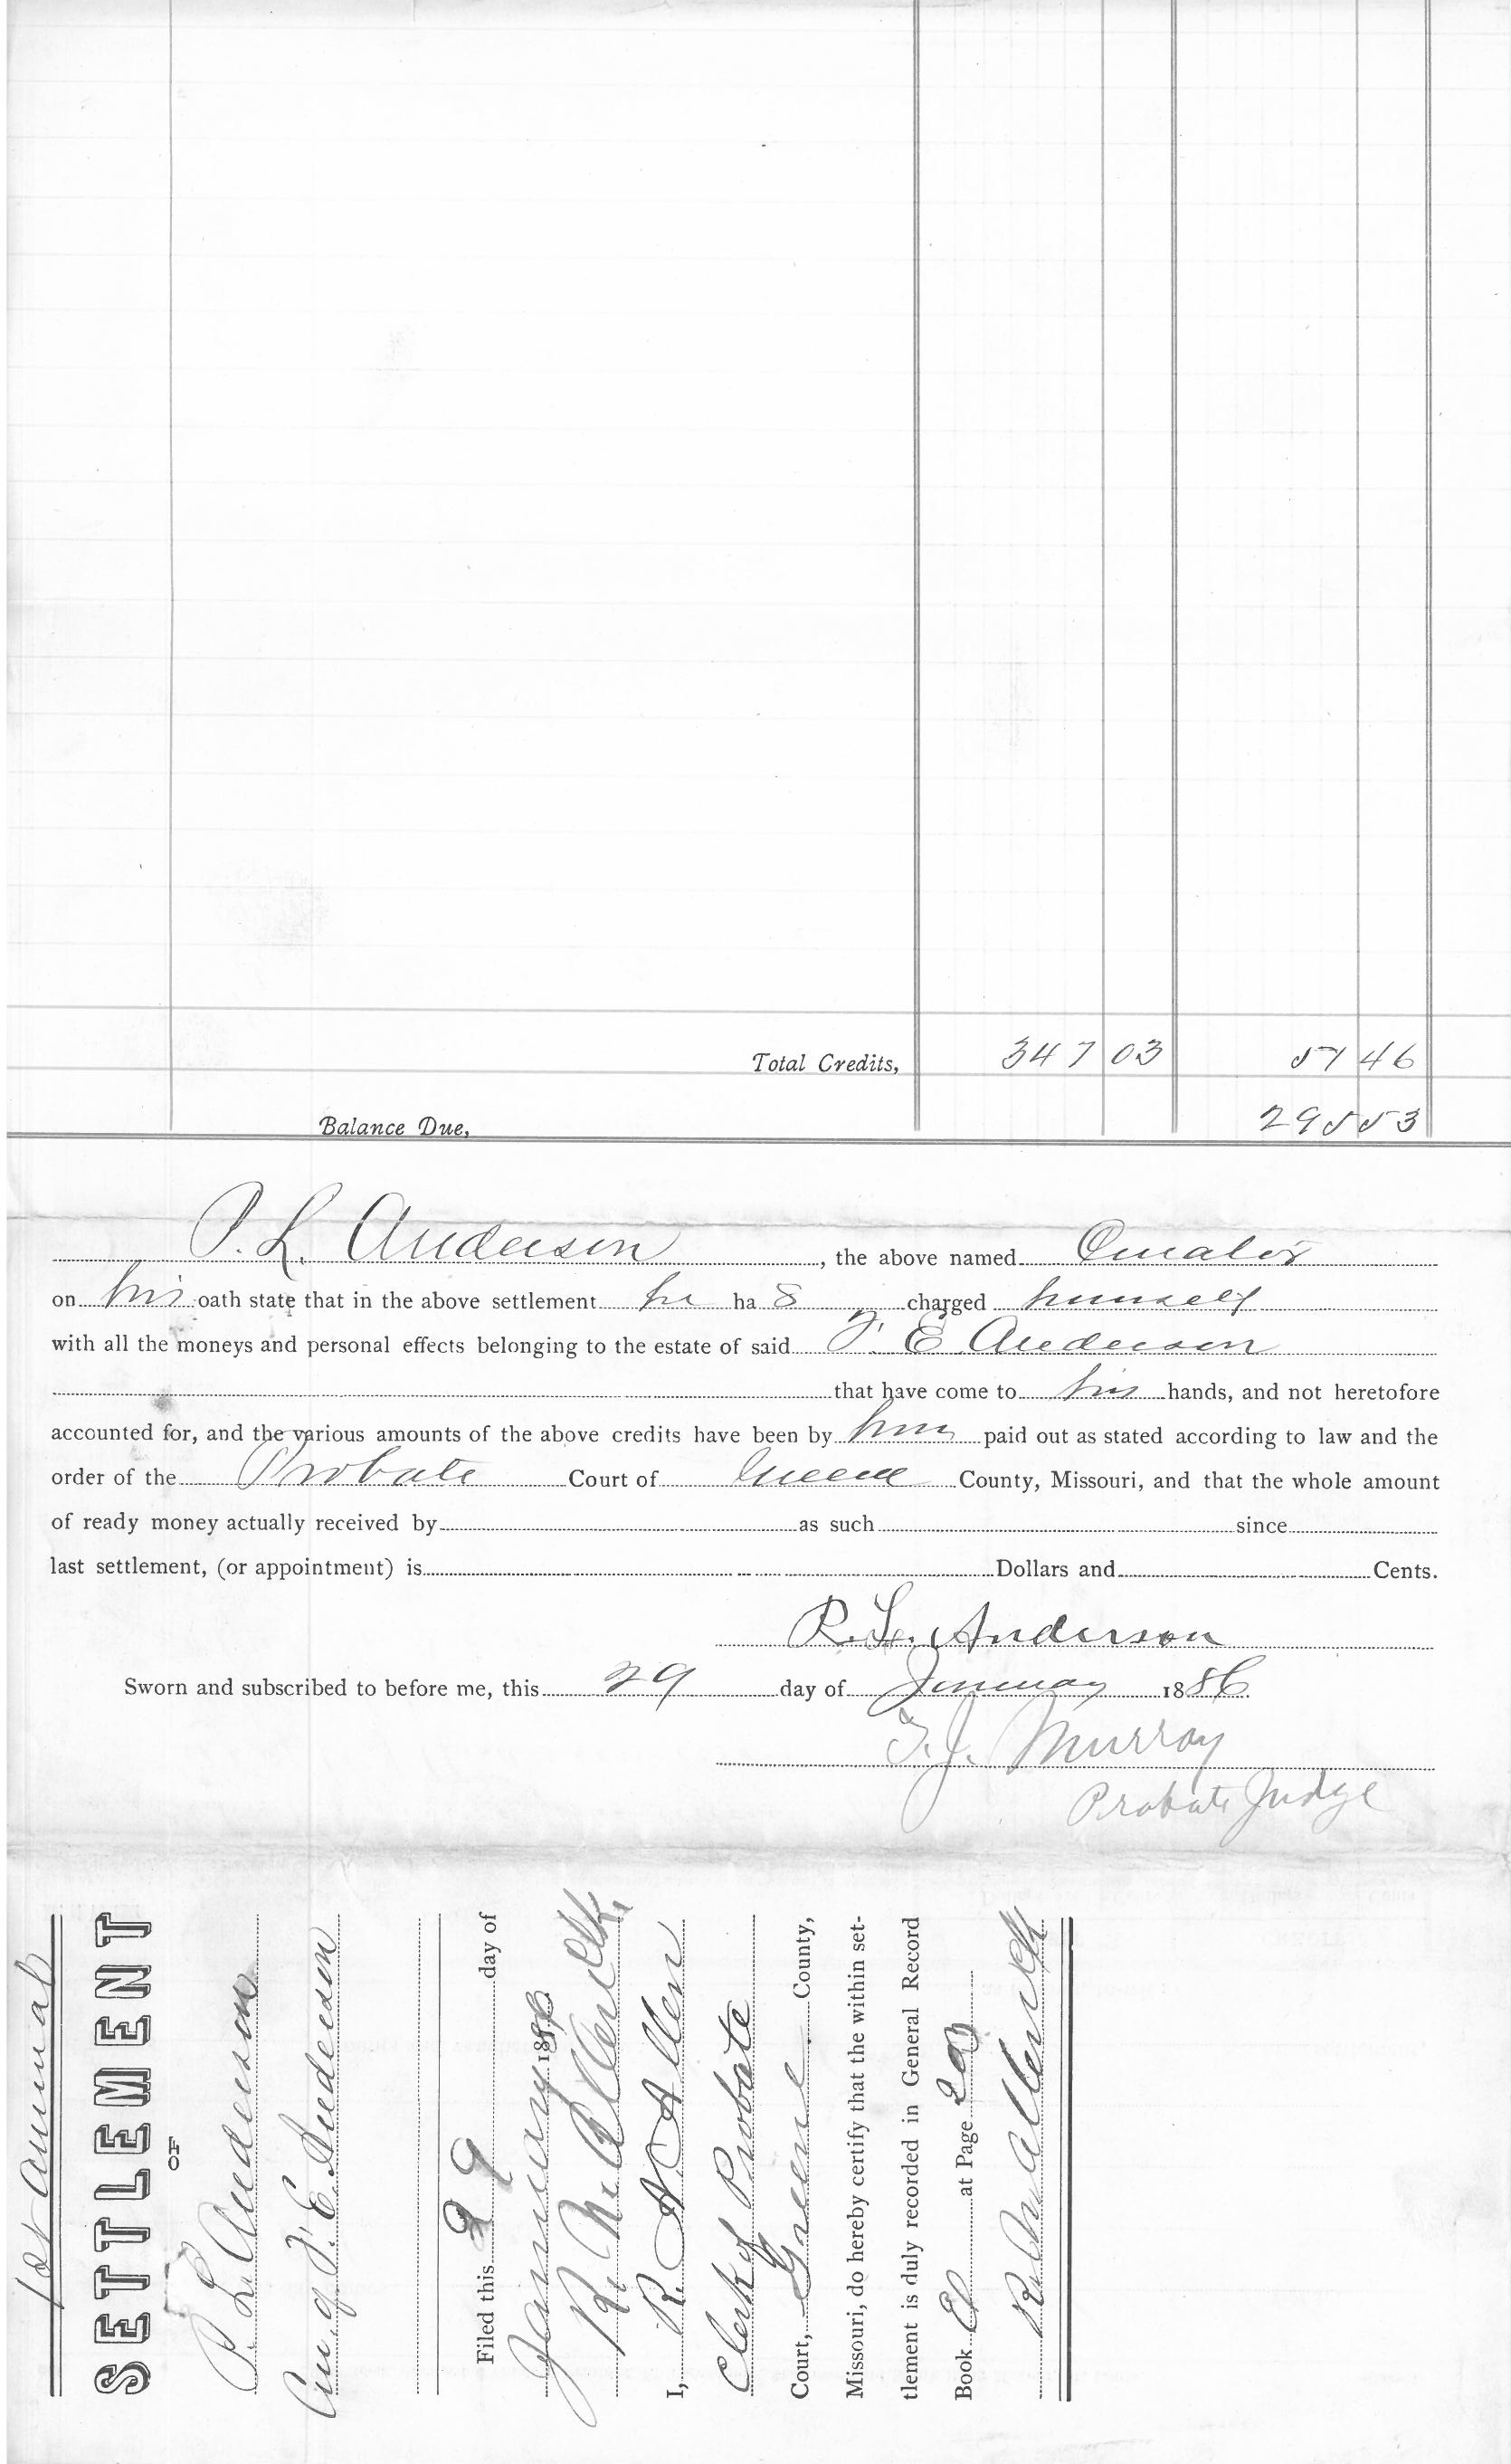 Total Credits, 347 03 51 46
Balance Due, 295 53
P. L. Anderson, the above named Curator
on his oath state that in the above settlement he ha s charged himself
with all the moneys and personal effects belonging to the estate of said F. E. Anderson
that have come to his hands, and not heretofore
accounted for, and the various amounts of the above credits have been by him paid out as stated according to law and the
order of the Probate Court of Greene County, Missouri, and that the whole amount
of ready money actually received by as such since
last settlement, (or appointment) is Dollars and Cents.
R. L. Anderson
Sworn and subscribed to before me, this 29 day of January 1886.
T. J. Murray
Probate Judge
1st Annual
SETTLEMENT
OF
P. L. Anderson
Cur. of F. E. Anderson
Filed this 29 day of
January 1886
R. N. Allen Clk.
I, R. N. Allen
Clerk of Probate
Court, Greene County,
Missouri, do hereby certify that the within set-
tlement is duly recorded in General Record
Book at Page
R. N. Allen Clk